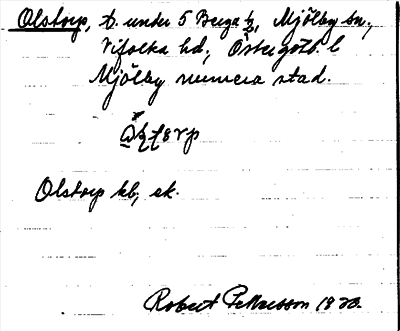 Olstorp, t. under 5 Berga by, Mjölby sn.,
Vifolka hd, Östergötl. l
Mjölby numera stad.
Olstorp kb, ek.
Robert Pettersson 1923.